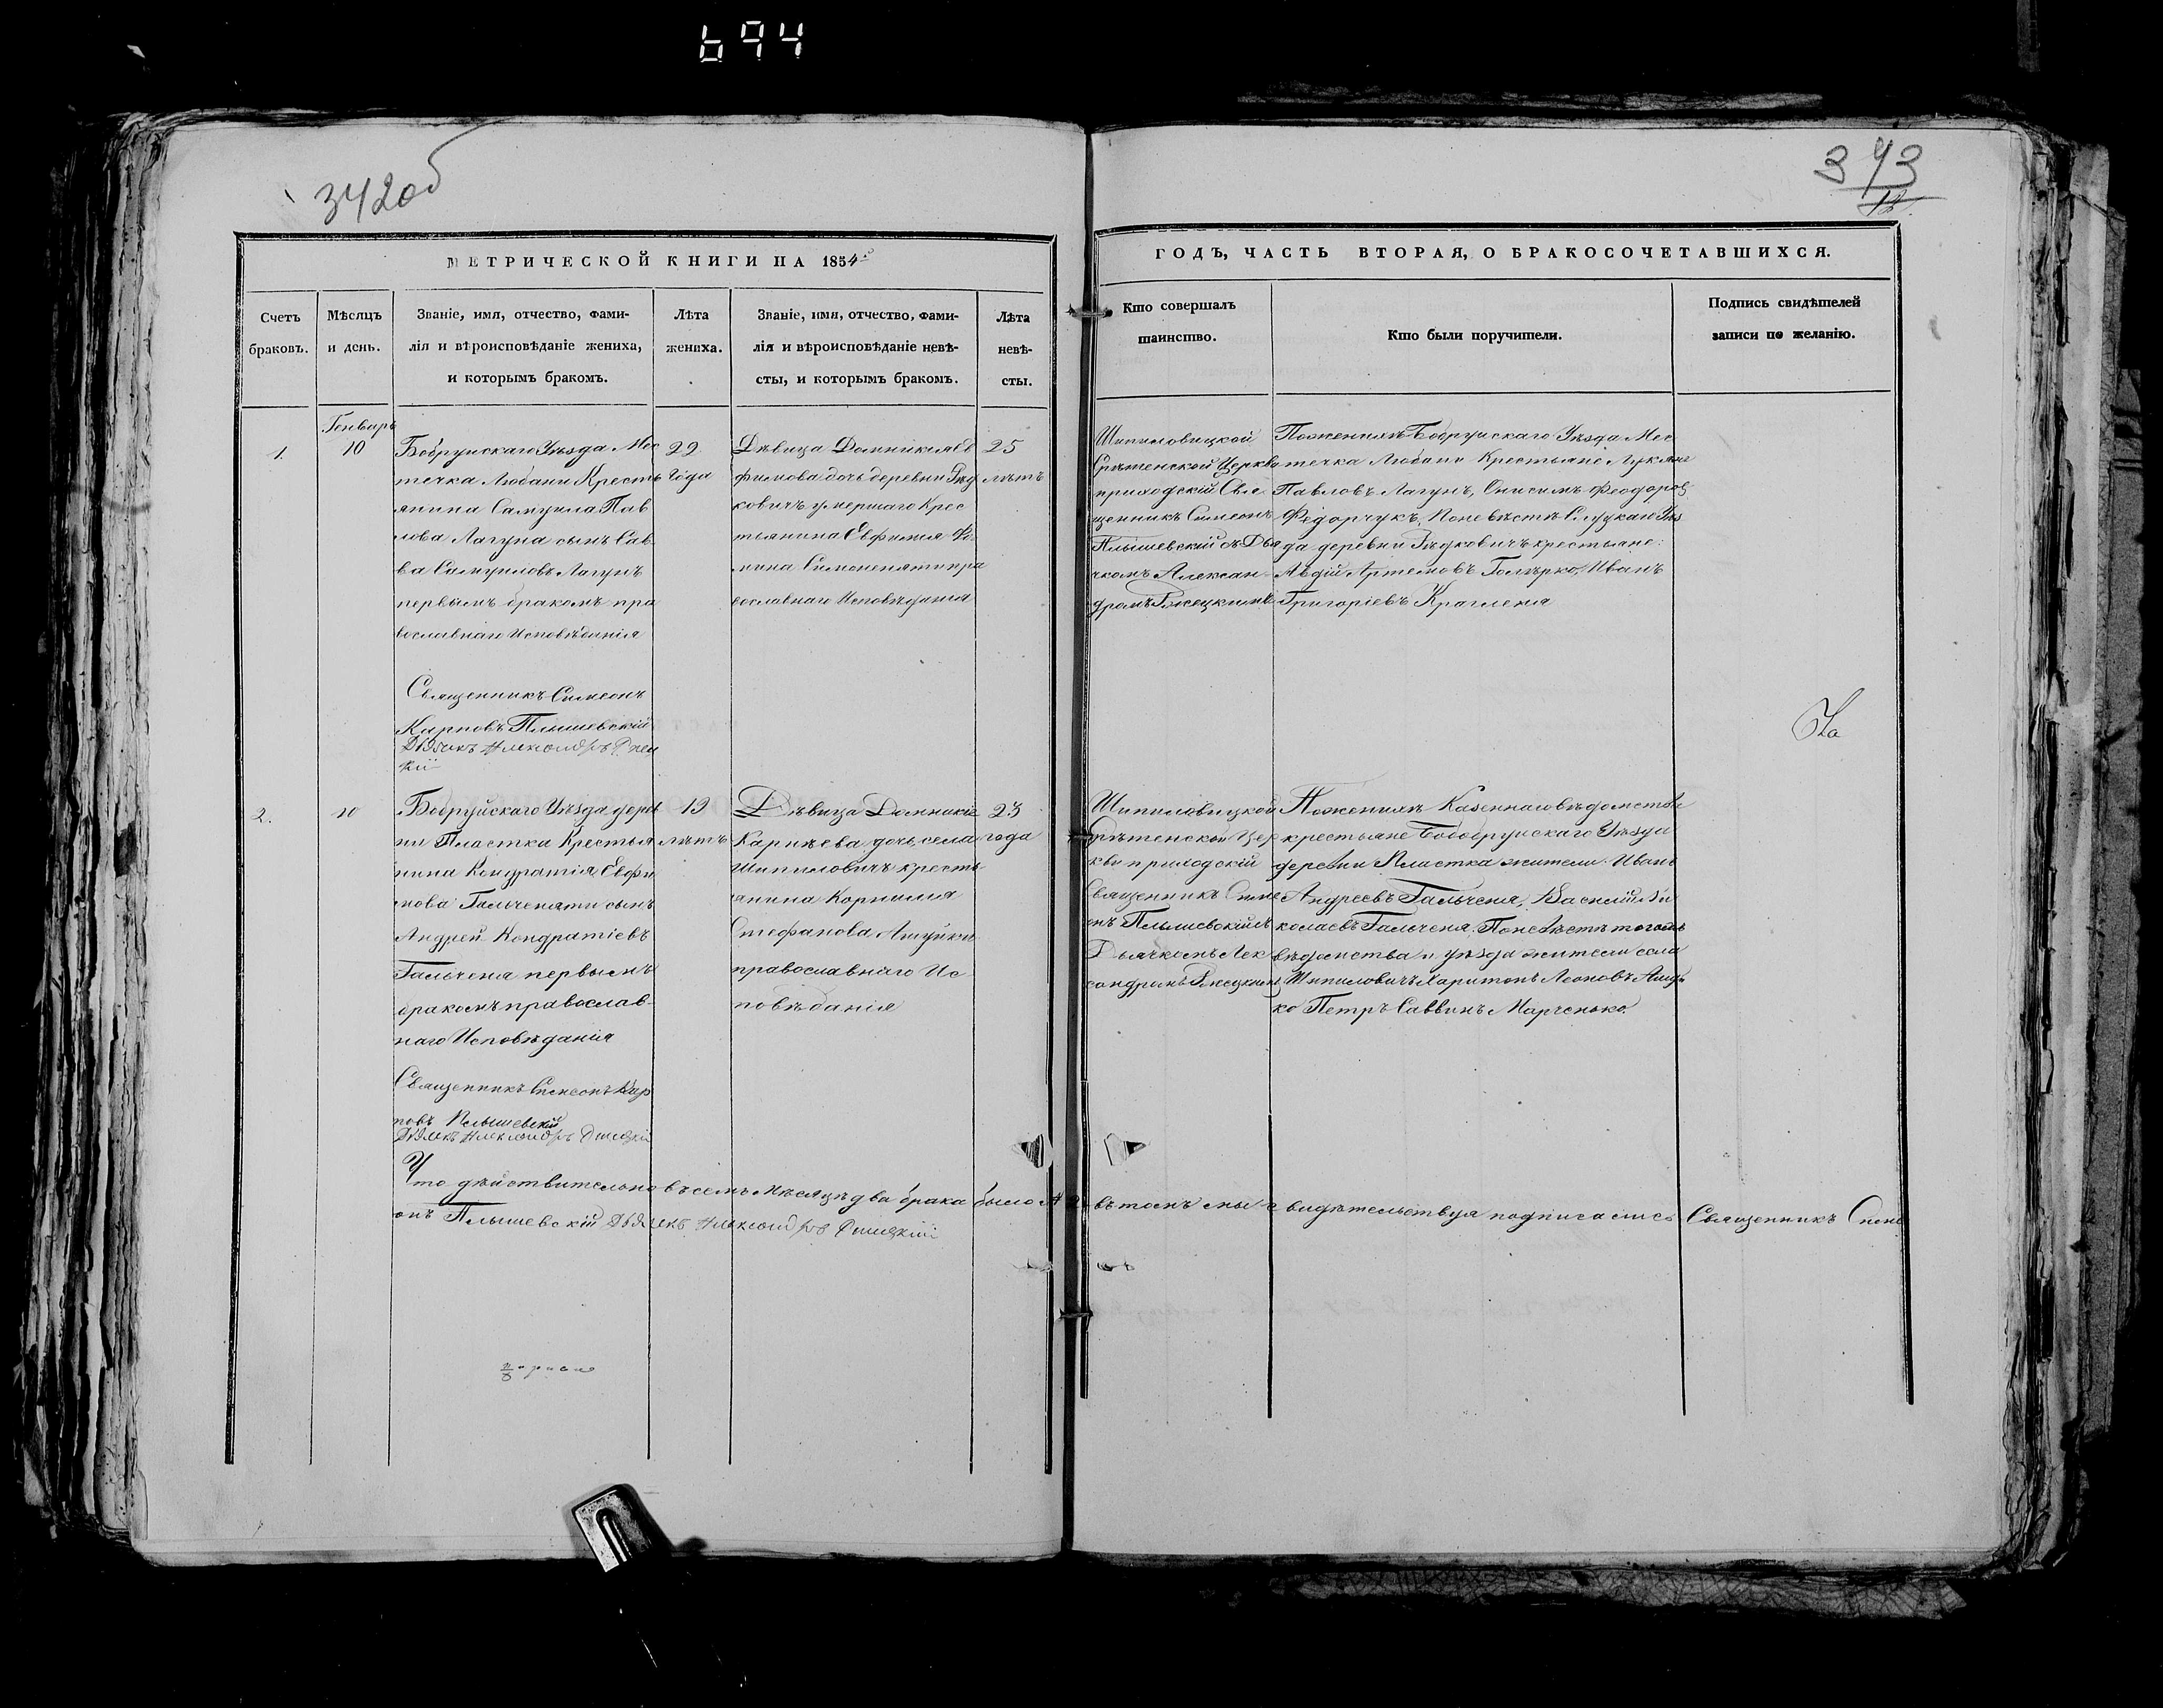 694
342об
343
12
МЕТРИЧЕСКОЙ КНИГИ НА 1854й
ГОДЪ, ЧАСТЬ ВТОРАЯ, О БРАКОСОЧЕТАВШИХСЯ.
Счетъ
браковъ.
Мѣсяцъ
и день.
Званіе, имя, отчество, фами-
лія и вѣроисповѣданіе жениха,
и которымъ бракомъ.
Лѣта
жениха.
Званіе, имя, отчество, фами-
лія и вѣроисповѣданіе невѣ-
сты, и которымъ бракомъ.
Лѣта
невѣ-
сты.
Кто совершалъ
таинство.
Кто были поручители.
Подпись свидѣтелей
записи по желанію.
1.
Генварь
10
Бобруйскаго Уѣзда Мес
течка Любани Кресть
янина Самуила Пав
лова Лагуна сынъ Сав
ва Самуиловъ Лагунъ
первымъ бракомъ пра
вославнаго Исповѣданія
Священникъ Симеонъ
Карповъ Плышевскій
Дьячекъ Александръ
22
года
Дѣвица Домникія Ев
фимова дочь деревни Рѣд
ковичъ умершаго Крес
тьянина Евфимія Фо
мина Симоненяти пра
вославнаго Исповѣданія
25
лѣтъ
Шипиловицкой
Срѣтенской Церкви
приходскій Свя
щенникъ Симеонъ
Плышевскій съ Дья
чкомъ Алексан
дромъ
По женихѣ Бобруйскаго Уѣзда Мес
течка Любани Крестьяне Лукьянъ
Павловъ Лагунъ, Онисимъ Феодоровъ
Федорчукъ, По невѣстѣ Слуцкаго Уѣз
да деревни Рѣдковичъ крестьяне:
Авдій Артемовъ Иванъ
Григоріевъ Крагленя
На
2.
10
Бобруйскаго Уѣзда дерев
ни Пластка Крестья
нина Кондратія Евфи
мова Гальченяти сынъ
Андрей Кондратіевъ
Гальченя первымъ
бракомъ православ
наго Исповѣданія
Священникъ Симеонъ Кар
повъ Плышевскій
Дьячекъ Александръ
19
лѣтъ
Дѣвица Домникія
Карнѣева дочь села
Шипиловичъ кресть
янина Корнилія
Стефанова
православнаго Ис
повѣданія
23
года
Шипиловицкой
Срѣтенской Цер
кви приходскій
Священникъ Симе
онъ Плышевскій съ
Дьячкомъ Алек
сандромъ
По женихѣ Казеннаго вѣдомства
крестьяне Бобобруйскаго Уѣзда
деревни Пластка жители: Иванъ
Андреевъ Гальченя, Василій Ни
колаевъ Гальченя. По невѣстѣ тогожъ
вѣдомства и уѣзда жители села
Шипиловичъ Харитонъ Леоновъ
ко Петръ Саввинъ Марченько.
Что дѣйствительно въ семъ Мѣсяцѣ два брака было № 2 въ томъ мы свидѣтельствуя подписались Священникъ Симе
онъ Плышевскій Дьячекъ Александръ